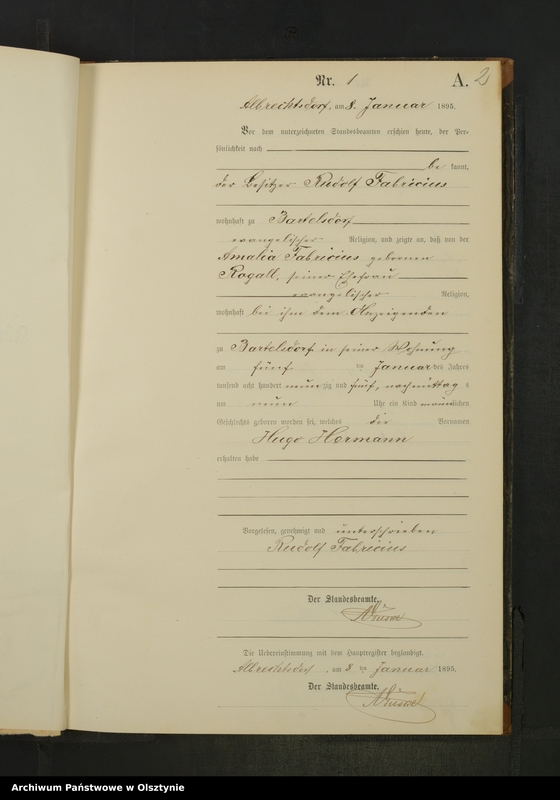 Nr. 1 A. 2
Albrechtsdorf, am 8. Januar 1895.
Vor dem unterzeichneten Standesbeamten erschien heute, der Per-
sönlichkeit nach
be kannt,
der Besitzer Rudolf Fabricius
wohnhaft zu Bartelsdorf
evangelischer Religion, und zeigte an, daß von der
Amalia Fabricius geborenen
Rogall, seiner Ehefrau
evangelischer Religion,
wohnhaft bei ihm dem Anzeigenden
zu Bartelsdorf in seiner Wohnung
am fünf ten Januar des Jahres
tausend acht hundert neunzig und fünf, nachmittag s
um neun Uhr ein Kind männlichen
Geschlechts geboren worden sei, welches die Vornamen
Hugo Hermann
erhalten habe
Vorgelesen, genehmigt und unterschrieben
Rudolf Fabricius
Der Standesbeamte.
Die Uebereinstimmung mit dem Hauptregister beglaubigt.
Albrechtsdorf, am 8 ten Januar 1895.
Der Standesbeamte.
Archiwum Państwowe w Olsztynie